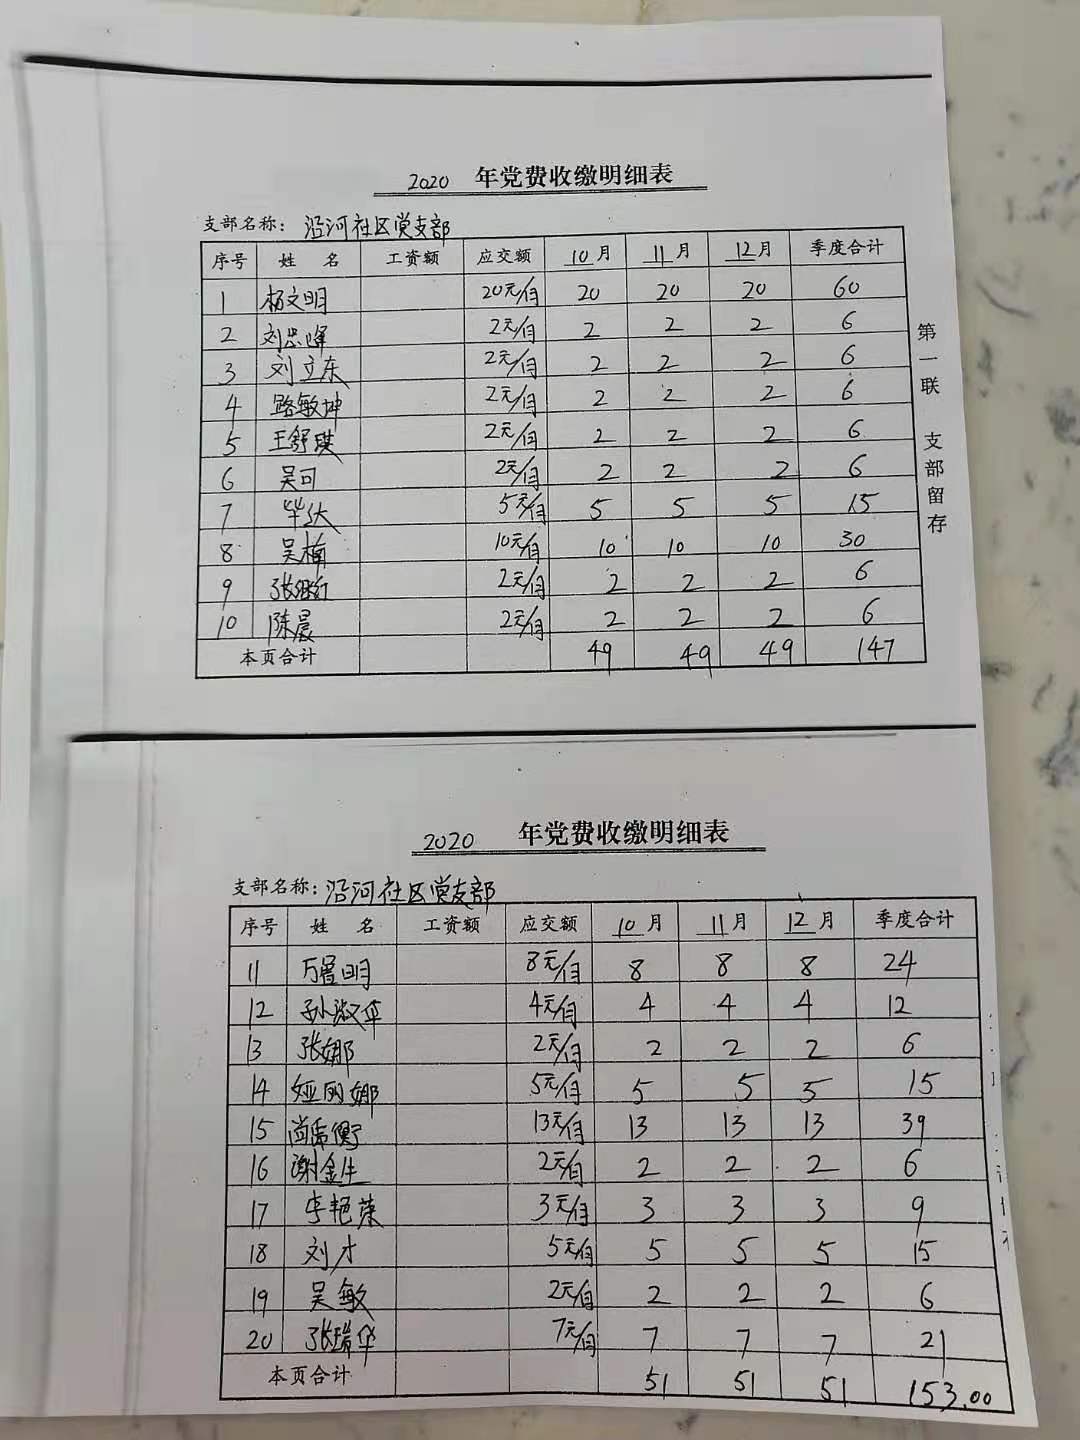 2020 年党费收缴明细表
支部名称: 沿河社区党支部
序号 姓 名 工资额 应交额 10月 11月 12月 季度合计
1 杨文明 20元/月 20 20 20 60
2 刘忠峰 2元/月 2 2 2 6
3 刘立东 2元/月 2 2 2 6
4 路敏坤 2元/月 2 2 2 6
5 王舒琪 2元/月 2 2 2 6
6 吴可 2元/月 2 2 2 6
7 毕达 5元/月 5 5 5 15
8 吴楠 10元/月 10 10 10 30
9 张继红 2元/月 2 2 2 6
10 陈晨 2元/月 2 2 2 6
本页合计 49 49 49 147
第一联 支部留存
2020 年党费收缴明细表
支部名称: 沿河社区党支部
序号 姓 名 工资额 应交额 10月 11月 12月 季度合计
11 万晋明 8元/月 8 8 8 24
12 孙淑华 4元/月 4 4 4 12
13 张娜 2元/月 2 2 2 6
14 娅丽娜 5元/月 5 5 5 15
15 尚 衡 13元/月 13 13 13 39
16 谢金生 2元/月 2 2 2 6
17 李艳荣 3元/月 3 3 3 9
18 刘才 5元/月 5 5 5 15
19 吴敏 2元/月 2 2 2 6
20 张瑞华 7元/月 7 7 7 21
本页合计 51 51 51 153.00